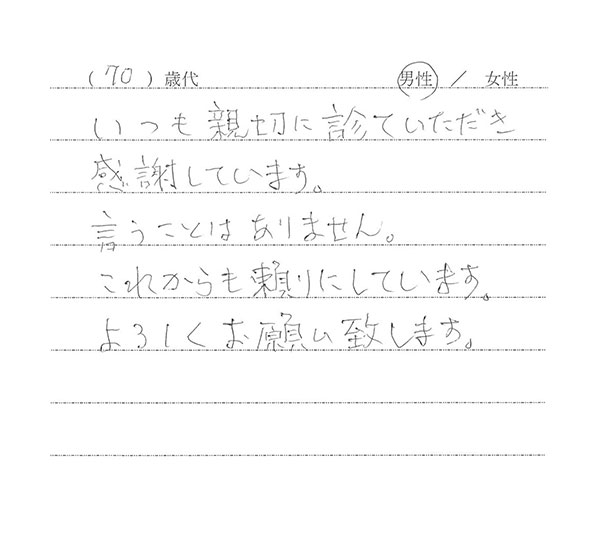 (70)歳代 男性 / 女性
いつも親切に診ていただき
感謝しています。
言うことはありません。
これからも頼りにしています。
よろしくお願い致します。